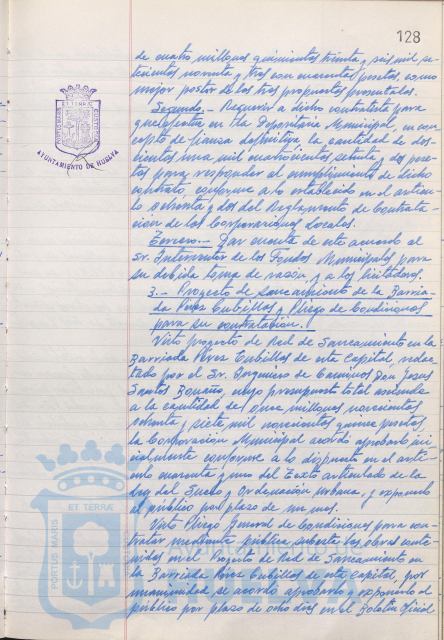 128
de cuatro millones quinientos treinta y seis mil se-
tecientos noventa y tres con cuarenta pesetas, como
mejor postor de las tres propuestas presentadas.
Segundo.- Requerir a dicho contratista para
que deposite en la Depositaría Municipal, en con-
cepto de fianza definitiva la cantidad de dos-
cientas una mil cuatrocientas setenta y dos pese-
tas para responder al cumplimiento de dicho
contrato, conforme a lo establecido en el artícu-
lo ochenta y dos del Reglamento de Contrata-
ción de las Corporaciones Locales.
Tercero.- Dar cuenta de este acuerdo al
Sr. Interventor de los Fondos Municipales para
su debida toma de razón y a los licitadores.
3.- Proyecto de saneamiento de la Barria-
da Pérez Cubillas y Pliego de Condiciones
para su contratación.
Visto proyecto de Red de Saneamiento en la
Barriada Pérez Cubillas de esta Capital, redac-
tado por el Sr. Ingeniero de Caminos Don Jesús
Santos cuyo presupuesto total asciende
a la cantidad de once millones novecientas
ochenta y siete mil novecientas quince pesetas,
la Corporación Municipal acordó aprobarlo ini-
cialmente conforme a lo dispuesto en el artí-
culo cuarenta y uno del Texto articulado de la
Ley del Suelo y Ordenación Urbana, y exponerlo
al público por plazo de un mes.
Visto Pliego General de Condiciones para con-
tratar mediante pública subasta las obras conte-
nidas en el Proyecto de Red de Saneamiento en
la Barriada Pérez Cubillas de esta capital, por
unanimidad se acordó aprobarlo y exponerlo al
público por plazo de ocho días en el Boletín Oficial
AYUNTAMIENTO DE HUELVA
ET TERRÆ
PORTUS MARIS
ET TERRÆ
CUSTODIA
Ayuntamiento de